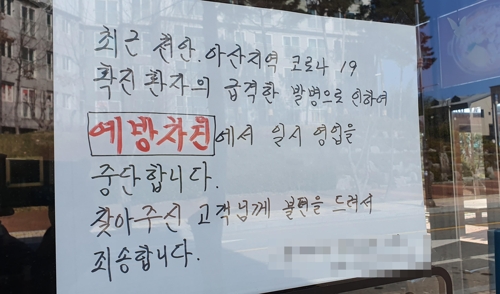 최근 천안.아산지역 코로나 19
확진 환자의 급격한 발병으로 인하여
예방차원에서 일시 영업을
중단합니다.
찾아주신 고객님께 불편을 드려서
죄송합니다.